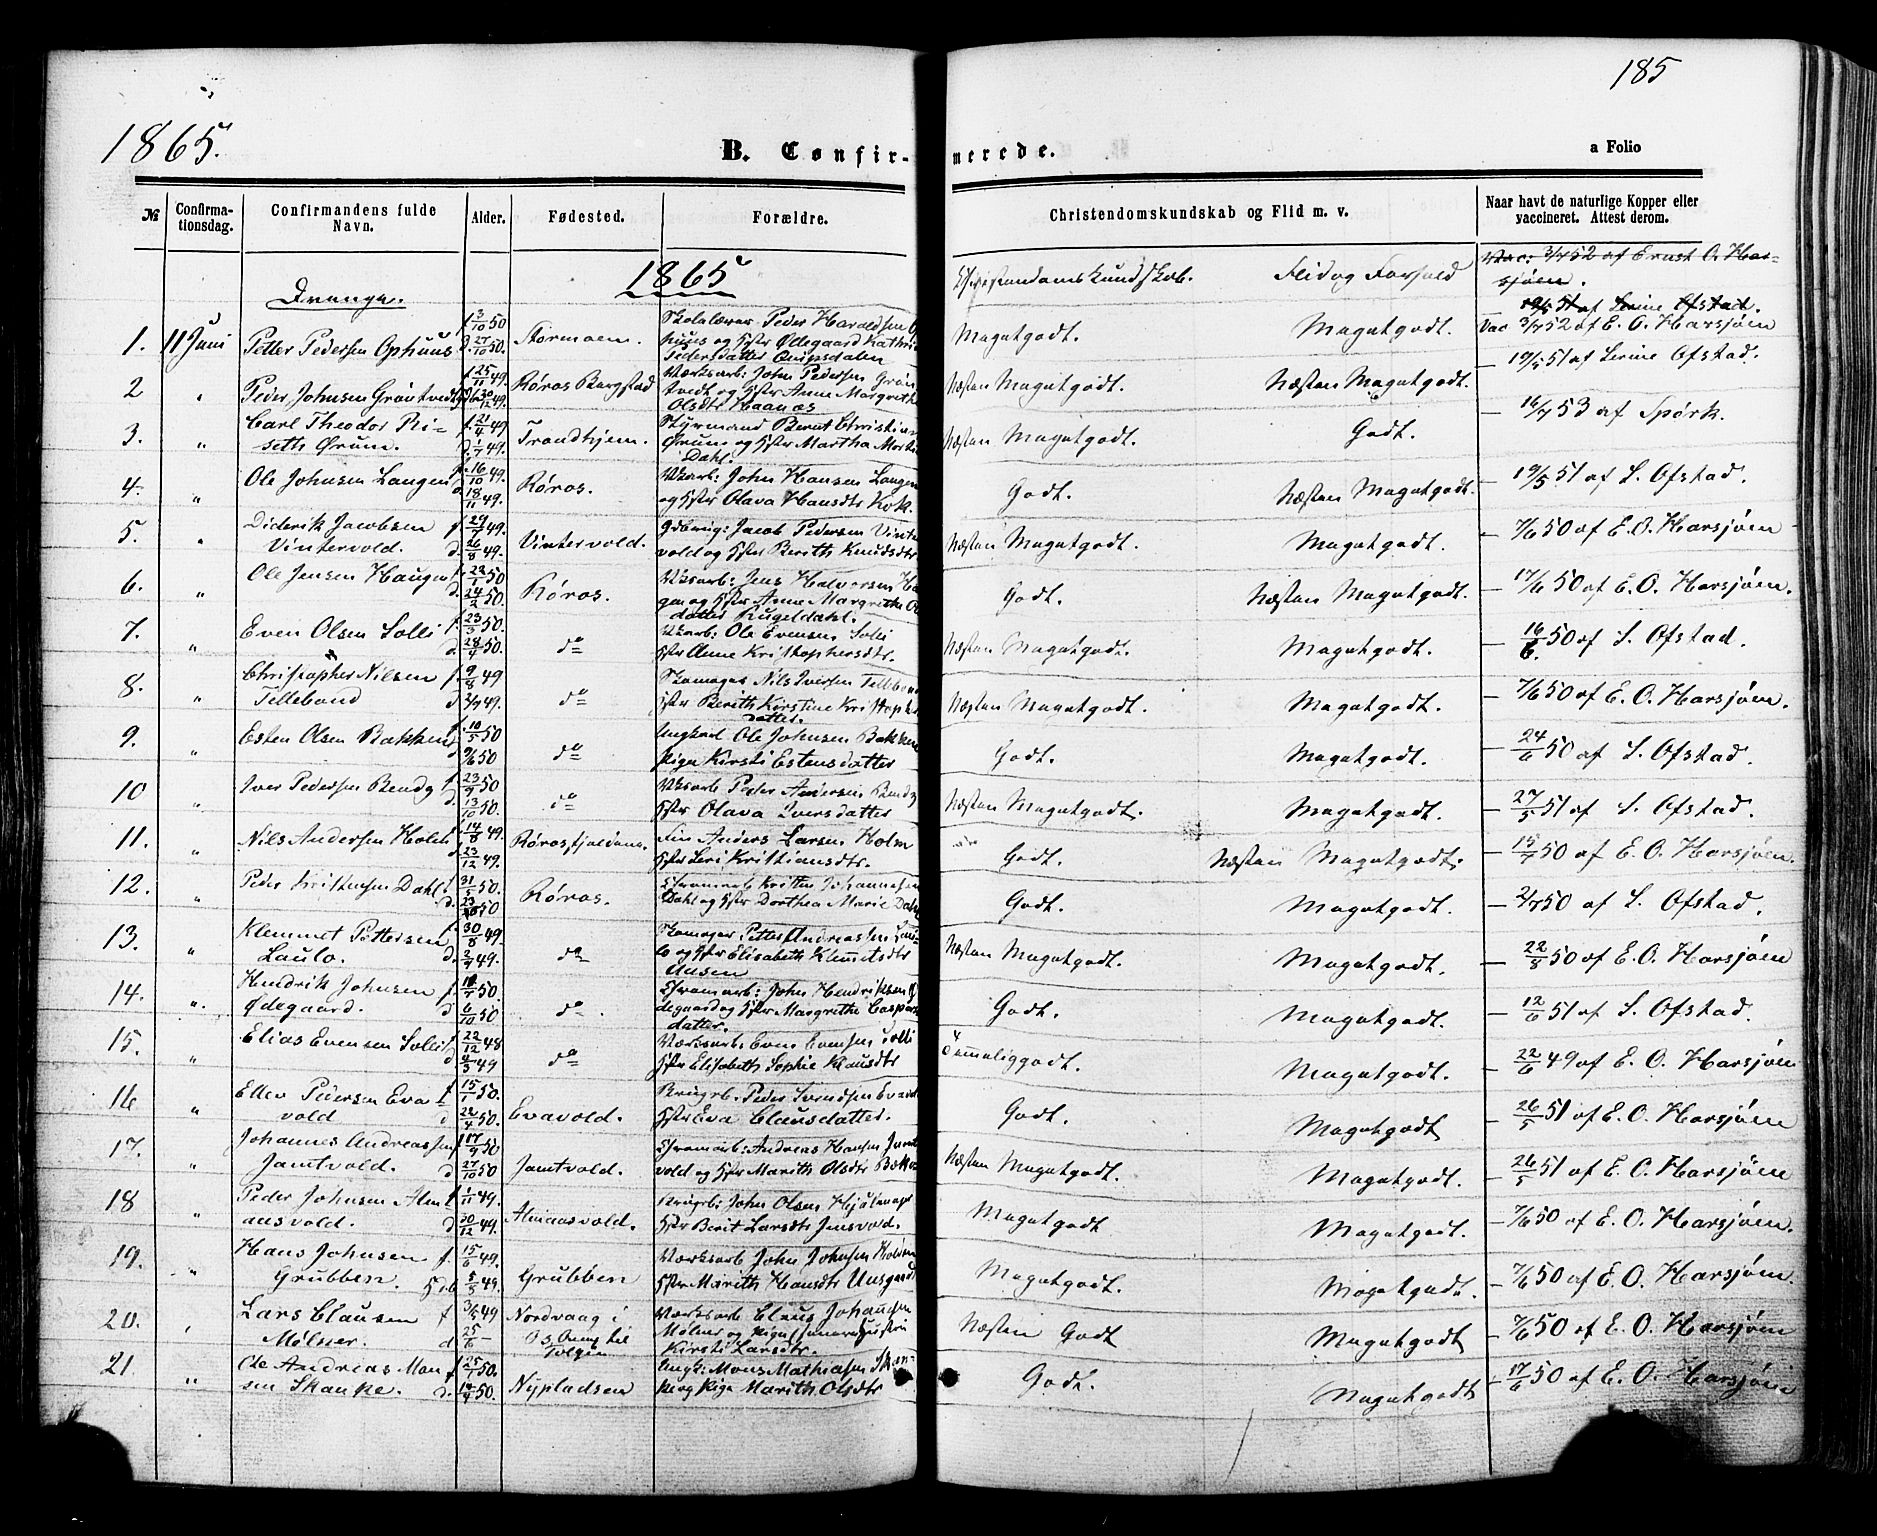 185
1865.
B. Confirmerede.
a Folio
№ Confirmationsdag. Confirmandens fulde Navn. Alder. Fødested. Forældre. Christendomskundskab og Flid m. v. Naar havt de naturlige Kopper eller vaccineret. Attest derom.
Drenge. 1865 Christendomskundskab. Flid og Forhold Vac: 3/7 52 af Ernst O. Harsjøen.
19/5 51 af Serine Ofstad.
1. 11 Juni Petter Pedersen Ophuus f. 3/10 50 d. 27/10 50. Stormoen. Skolelærer Peder Haraldsen Ophuus og Hstr Ødegaard Kathrine Pedersdatter Qvipsdalen Megetgodt. Megetgodt. Vac 3/7 52 af E. O. Harsjøen
2 " Peder Johnsen Grøntvedt f. 25/11 49. 26/12 49. Røros Bergstad Værksarb: John Pedersen Grøntvedt og Hstr Anne Margrethe Olsdtr Haanæs Næsten Megetgodt. Næsten Megetgodt. 19/5 51 af Serine Ofstad.
3. " Carl Theodor Riseth Ørum. f. 21/4 49 d. 1/7 49. Trondhjem. Styrmand Bernt Christian Ørum og Hstr Martha Dahl. Næsten Megetgodt. Godt. — 16/7 53 af Spørk.
4. " Ole Johnsen Langen f. 16/10 49. d. 18/11 49. Røros. Vksarb: John Hansen Langen og Hstr Olava Hansdtr Kokk. Godt. Næsten Megetgodt. — 19/5 51 af S. Ofstad.
5. " Diderik Jacobsen Vintervold. f. 29/7 49. d. 26/8 49. Vintervold. Gdbrug: Jacob Pedersen Vintervold og Hstr Berith Knudsdtr Næsten Megetgodt. Megetgodt. — 7/6 50 af E. O. Harsjøen
6. " Ole Jensen Haugen f. 22/1 50 d. 24/2 50. Røros. Vksarb: Jens Halvorsen Haugen og Hstr Anne Margrethe Olsdatter Rugeldahl. Godt. Næsten Megetgodt. — 17/6 50 af E. O. Harsjøen.
7. " Even Olsen Solli f. 23/3 50. d. 28/4 50. do Vksarb: Ole Evensen Solli Hstr Anne Kristophersdtr. Næsten Megetgodt. Megetgodt. — 16/6 50 af S. Ofstad.
8. " Christopher Nilsen Tillebond f. 9/8 49 d. 2/9 49. do Skomager Nils Iversen Tillebond Hstr Berith Kirstine Kristophersdatter. Næsten Megetgodt. Megetgodt. — 7/6 50 af E. O. Harsjøen.
9. " Esten Olsen Bakken f. 10/5 50 d. 9/6 50 do Ungkarl Ole Johnsen Bakken Pige Kirsti Estensdatter Godt. Megetgodt. — 24/6 50 af S. Ofstad.
10 " Iver Pedersen Bendz f. 23/9 50 d. 13/10 50. do Vksarb Peder Andersen Bendz Hstr Olava Iversdatter Næsten Megetgodt. Megetgodt. — 27/5 51 af S. Ofstad.
11. " Nils Andersen Holm f. 14/8 49. d. 23/12 49. Rørosfjeldene. Fin Anders Larsen Holm Hstr Leri Kristiansdtr. Godt. Næsten Megetgodt. — 15/7 50 af E. O. Harsjøen.
12. " Peder Kristensen Dahl f. 31/5 50. d. 23/6 50 Røros. Grovarb Kristen Johannesen Dahl og Hstr Dorthea Marie Dahl Godt. Megetgodt. — 2/7 50 af S. Ofstad.
13. " Klemmet Pettersen Laulo. f. 30/8 49. d. 2/9 49. do Skomager Petter Andreassen Laulo og Hstr Elisabeth Klemetsdtr Aasen Næsten Megetgodt. Megetgodt. — 22/8 50 af E. O. Harsjøen
14. " Hendrik Johnsen Ødegaard. f. 50. d. 6/10 50 do John Hendriksen Ødegaard og Hstr Margrethe Caspersdatter. Godt. Megetgodt. — 12/6 51 af S. Ofstad.
15. " Elias Evensen Solli f. 22/12 48 d. 4/3 49 do Værksarb: Even Evensen Solli Hstr Elisabeth Sophie Klausdtr Temmeliggodt. Megetgodt. — 22/6 49 af E. O. Harsjøen
16 " Ellev Pedersen Evavold f. 15/1 50. d 22/4 50. Evavold. Brugrb. Peder Svendsen Evavold Hstr Eva Clausdatter. Godt. Megetgodt — 26/5 51 af E. O. Harsjøen
17. " Johannes Andreassen Jamtvold. f. 17/9 50 d 27/10 50 Jamtvold. Andreas Hansen Jamtvold og Hstr Marith Olsdtr Bækken Næsten Megetgodt. Megetgodt. — 26/5 51 af E. O. Harsjøen
18 " Peder Johnsen Almaasvold. f. 1/11 49. d 30/12 49. Almaasvold. Brugrb: John Olsen Hjulmager Hstr Berit Larsdtr Jensvold. Megetgodt Megetgodt. — 7/6 50 af E. O. Harsjøen.
19. " Hans Johnsen Grubben. f. 15/6 49. 5/5 49. Grubben Værksarb John Johnsen Hstr Marith Hansdtr Aasgaard Megetgodt. Megetgodt. — 7/6 50 af E. O. Harsjøen.
20. Lars Clausen Mølner. f 3/5 49 d 25/6 — Nordvaag i Os Annex til Tolgen Værksarb Claus Johansen Mølner og Pige Kirsti Larsdtr. Næsten Godt Megetgodt — 7/6 50 af E. O. Harsjøen
21. " Ole Andreas Monsen Skanke. f 25/1 50. d. 14/4 50. Nypladsen Ungk: Mons Mathiasen Skanke og Pige Marith Olsdtr Godt. Megetgodt — 17/6 50 af E. O. Harsjøen